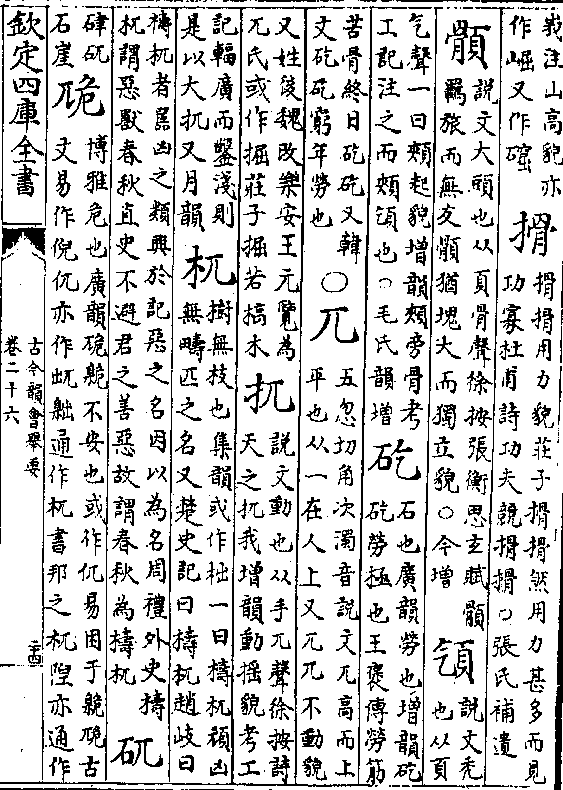 峩注山高貌亦
作崛又作䃕
搰
搰搰用力貌莊子搰搰然用力甚多而見
功寡杜甫詩功夫競搰搰○張氏補遺
顝
說文大頭也从頁骨聲徐按張衡思玄賦顝
羈旅而無友顝猶塊大而獨立貌○今增
䪼
說文禿
也从頁
气聲一曰頰起貌增韻頰旁骨考
工記注之而頰䪼也○毛氏韻增
矻
石也廣韻勞也增韻矻
矻勞極也王襃傳勞筋
苦骨終日矻矻又韓
文矻矻窮年勞也
○兀
五忽切角次濁音說文兀高而上
平也从一在人上又兀兀不動貌
又姓後魏改樂安王元覽為
兀氏或作掘莊子掘若槁木
扤
說文動也从手兀聲徐按詩
天之扤我增韻動揺貌考工
記輻廣而鑿淺則
是以大扤又月韻
杌
樹無枝也集韻或作柮一曰檮杌頑凶
無疇匹之名又楚史記曰檮杌趙岐曰
檮杌者嚚凶之類興於記惡之名因以為名周禮外史檮
杌謂惡獸春秋直史不避君之善惡故謂春秋為檮杌
矹
硉矹
石崖
卼
博雅危也廣韻卼臲不安也或作仉易困于臲卼古
文易作倪仉亦作䖓䵳通作杌書邦之杌隉亦通作
欽定四庫全書
古今韻會舉要
卷二十六
二十四